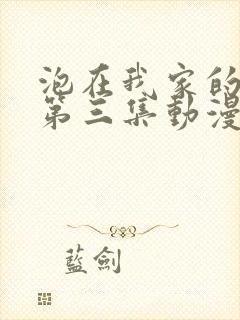 泡在我家的
第三集動漫
藍劍